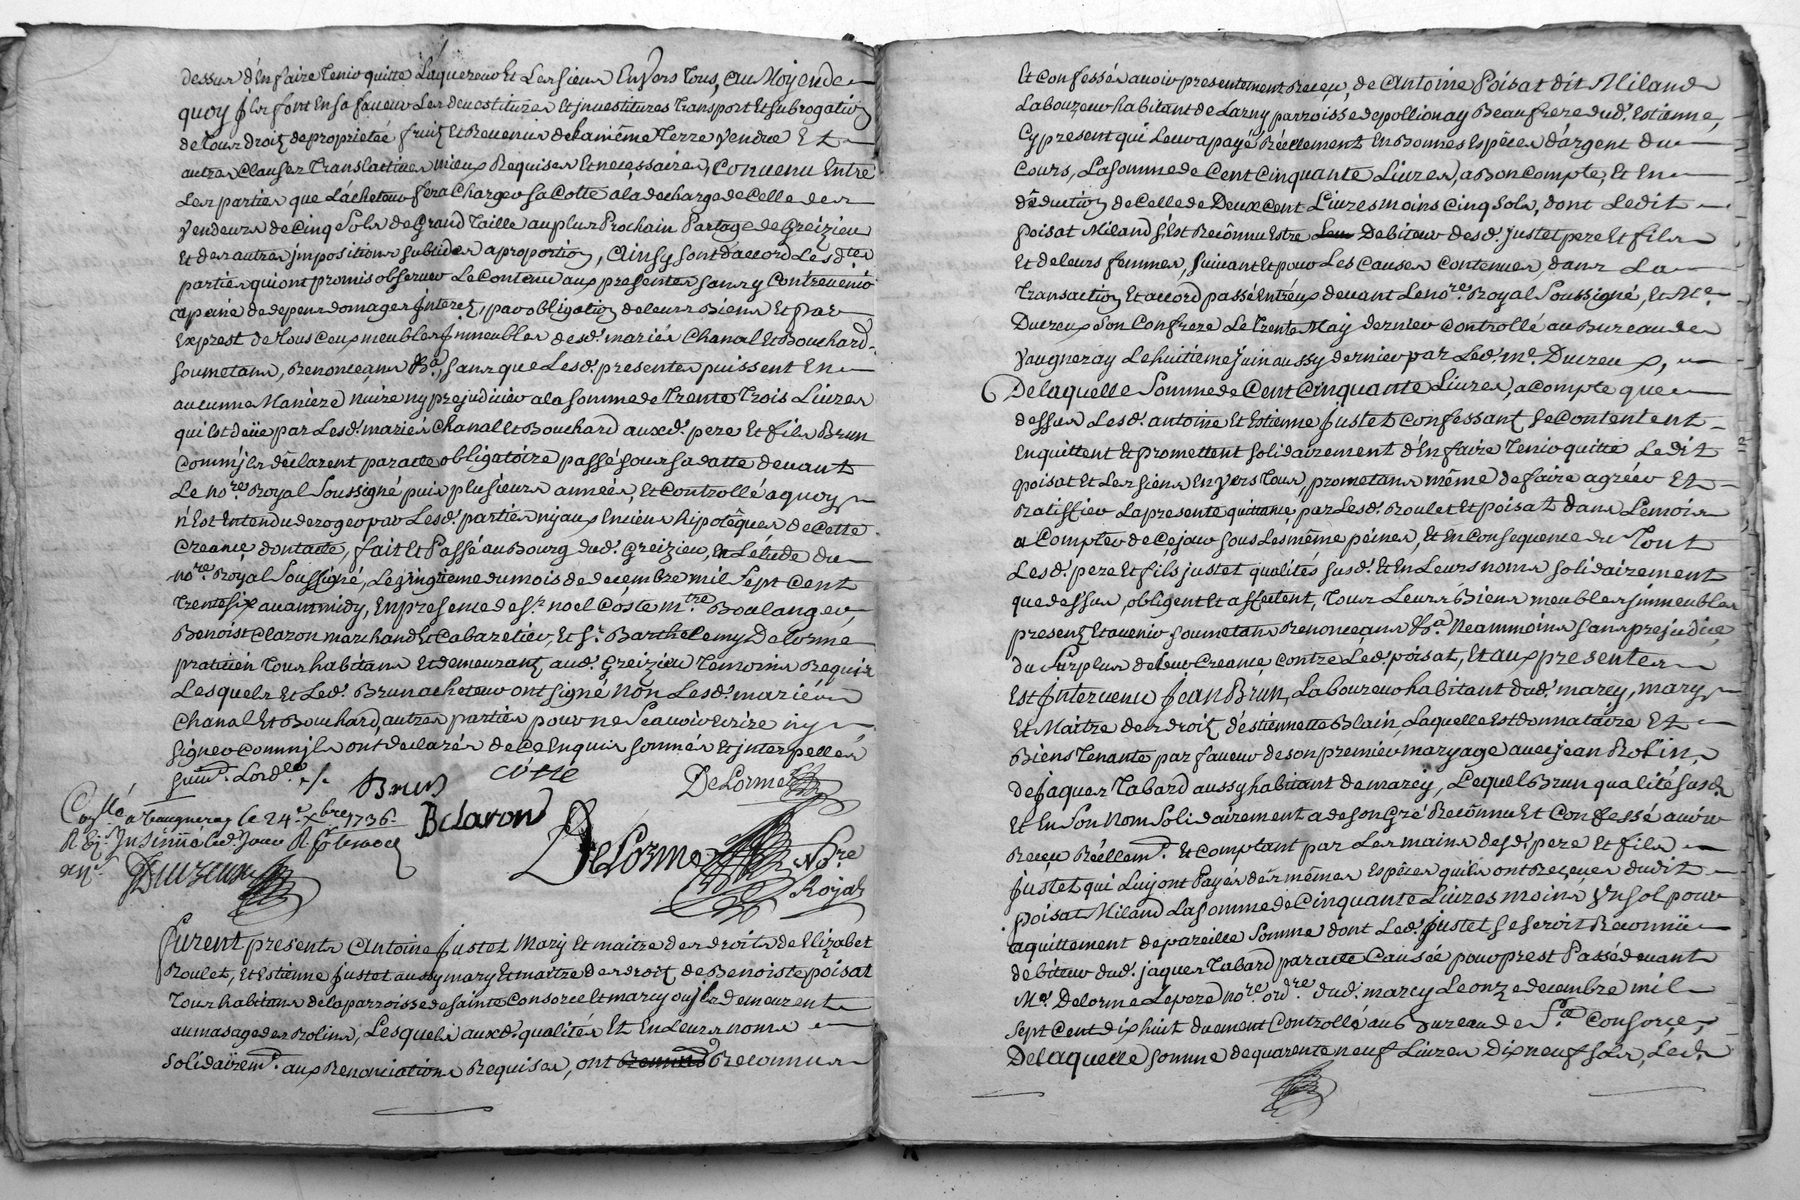 dessus d'En faire Tenir quitte Laquereur Et Les siens Envers Tous, au Moyen de
quoy Ils font En sa faveur Les devestitures Et jnvestitures Transport Et subrogation
de Tous droitz de proprietée fruitz Et Revenus de La même Terre vendue Et
autres Clauses Translatives mieux Requises Et necessaires, Convenu Entre
Les parties que L'acheteur fera Charger sa Cotte a la decharge de Celle des
vendeurs de Cinq Sols de Grand Taille au plus Prochain Partage de Greizieu
Et des autres jmpositions subsides a proportion, Ainsy sont d'accord Les dtes
parties qui ont promis observer Le Contenu aux presentes sans y Contrevenir
a peine de depens domages Interetz, par obligation de leurs Biens Et Par
Exprest de Tous Ceux meubles Immeubles desd. mariés Chanal Et Bouchard
soumetans, Renonceans &a, sans que Lesd. presentes puissent En
aucunne Maniere nuire ny prejudicier a la somme de Trente Trois Livres
qui Est deüe par Lesd. mariés Chanal Et Bouchard auxd. pere Et fils Brun
Comm'jls déclarent par acte obligatoire passé sous sa datte devant
Le nore Royal Soussigné puis plusieurs années, Et Controllé a quoy
n'Est Entendu deroger par Lesd. parties ny aux Enciens hipotêques de Cette
Creance, dont acte, fait Et Passé au Bourg dud. Greizieu, En L'étude du
nore Royal Soussigné, Le vingtieme du mois de decembre mil Sept Cent
Trente six avant midy, En presence de sr. noel Coste mtre Boulanger,
Benoist Claron marchand Et Cabaretier, Et sr. Barthelemy Delorme
praticien Tous habitans Et demeurantz aud. Greizieu Temoins Requis
Lesquels Et Led. Brun acheteur ont signé Non Lesd. mariés
Chanal Et Bouchard, autres parties pour ne Scavoir Ecrire ny
Signer Comm'jls ont declarés de Ce Enquis sommés Et jnterpellés
suivt. Lordce
Brun Coste DeLorme
Collé a Vaugneray le 24e xbre 1736
BClaron
Insinüé led. Jour
DeLorme Nore
Royal
Ducreux
Furent presents Antoine Justet Mary Et maitre des droits de Elizabet
Roulet, Et Estienne Justet aussy mary Et maitre des droitz de Benoiste poisat
Tous habitans de la parroisse de Sainte Consorce Et marcy ou jls demeurent
au masage des Rolins, Lesquels auxd. qualités Et En Leurs noms
solidairemt. aux Renonciations Requises, ont Reconnus
Et Confessés avoir presentement Receu, de Antoine Poisat dit Miland
Laboureur habitant de Larny parroisse de pollionay Beaufrere dud. Estienne,
Cy present qui Leur a payé Réellement En Bonnes Espêces d'argent du
Cours, La somme de Cent Cinquante Livres, a Bon Compte, Et En
déduction de Celle de Deux cent Livres moins Cinq sols, dont Ledit
Poisat Miland s'Est Reconnu Estre Debiteur desd. justet pere Et fils
Et de leurs femmes, suivant Et pour Les Causes Contenues, dans La
Transaction Et accord passé Entr'eux devant Le nore. Royal Soussigné, Et Me.
Ducreux Son Confrere Le Trente May dernier Controllé au Bureau de
Vaugneray Le huitieme juin aussy dernier par Led. me. Ducreux,
De laquelle Somme de Cent Cinquante Livres, a Compte que
dessus Lesd. antoine Et Estienne Justet Confessant se Contentent
En quittent Et promettent solidairement d'En faire Tenir quitte Ledit
poisat Et Les siens Envers Tous, prometans même de faire agréer Et
Ratiffier La presente quittance, par Lesd. Roulet Et poisat dans Le mois
a Compter de Ce jour sous Les même peines, Et En Consequence du Tout
Lesd. pere Et fils justet qualités susd. Et En Leurs noms solidairement
que dessus, obligent Et affectent, Tous Leurs Biens meubles jmmeubles
presentz Et avenir soumetans Renonceans &a. Neammoins sans prejudice
du Surplus de leur Creance, Contre Led. poisat, Et aux presentes
Est Intervenu Jean Brun, Laboureur habitant dud. marcy, mary
Et Maitre des droitz d'Estiennette Blain, Laquelle Est donnataire Et
Biens Tenante par faveur de son premier maryage avec jean Rolin,
de Jaques Tabard aussy habitant de marcy, Lequel Brun qualité susd.
Et En Son Nom Solidairement a de son Gré Reconnu Et Confessé avoir
Receu Réellemt. Et Comptant par Les mains desd. pere Et fils
Justet qui Luy ont Payés des mêmes Espêces quils ont Receues dudit
poisat Miland La somme de Cinquante Livres moins Vn sol pour
aquittement de pareille somme dont Led. Justet se seroit Reconnû
debiteur dud. jaques Tabard par acte Causée pour prest Passé devant
Me. Delorme Le pere nore ordre. dud. marcy Le onze decembre mil
sept Cent dix huit duement Controllé au Bureau de Ste Consorce,
De laquelle somme de quarente neuf Livres dix neuf sols, Led.